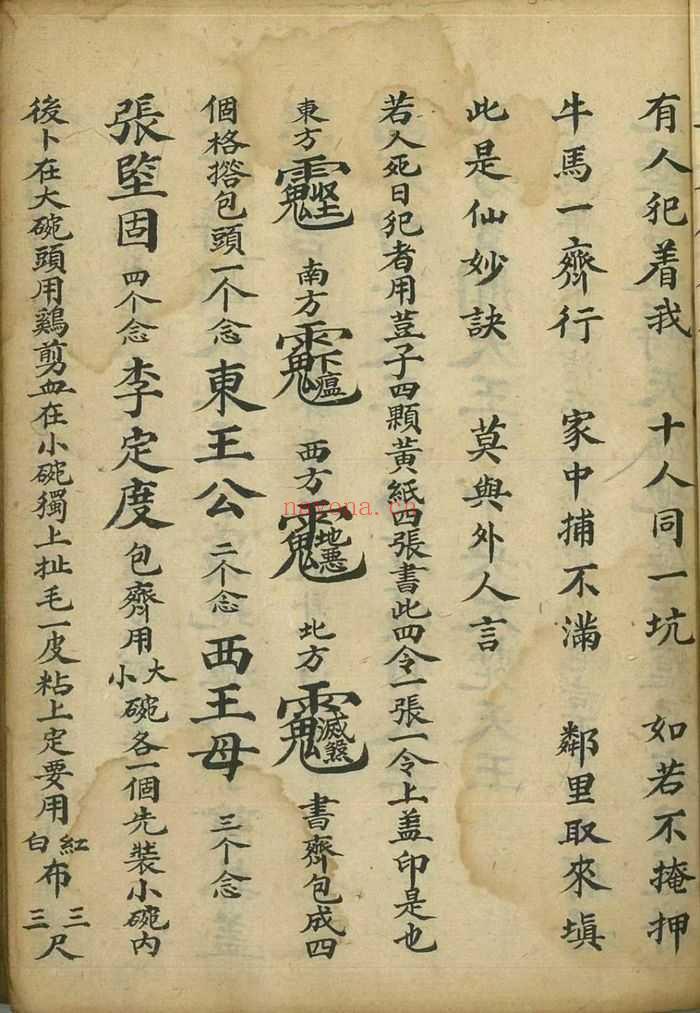 有人犯着我 十人同一坑 如若不掩押
牛馬一齊行 家中捕不滿 鄰里取來填
此是仙妙訣 莫與外人言
若人死日犯者用荳子四顆黃紙四張書此四令一張一令上盖印是也
東方 南方 西方 北方 書齊包成四
個格撘包頭一个念東王公二个念西王母三个念
張堅固四个念李定度包齊用大小碗各一個先装小碗内
後卜在大碗頭用鷄剪血在小碗獨上扯毛一皮粘上定要用紅白布三三尺
nayona.cn